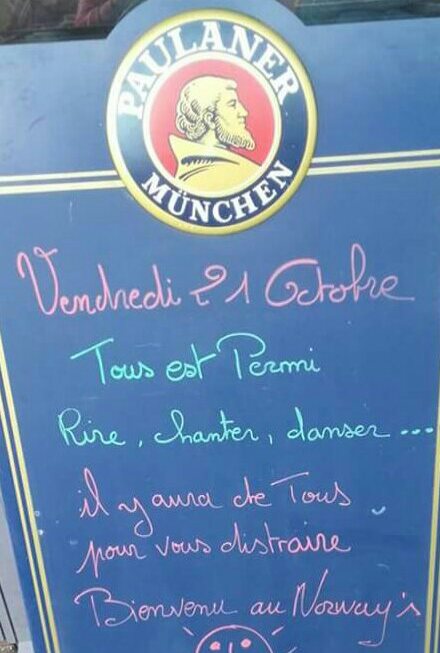 PAULANER
MÜNCHEN
Vendredi 21 Octobre
Tous est Permi
Rire, chanter, danser ...
il y aura de Tous
pour vous distraire
Bienvenu au Norway's